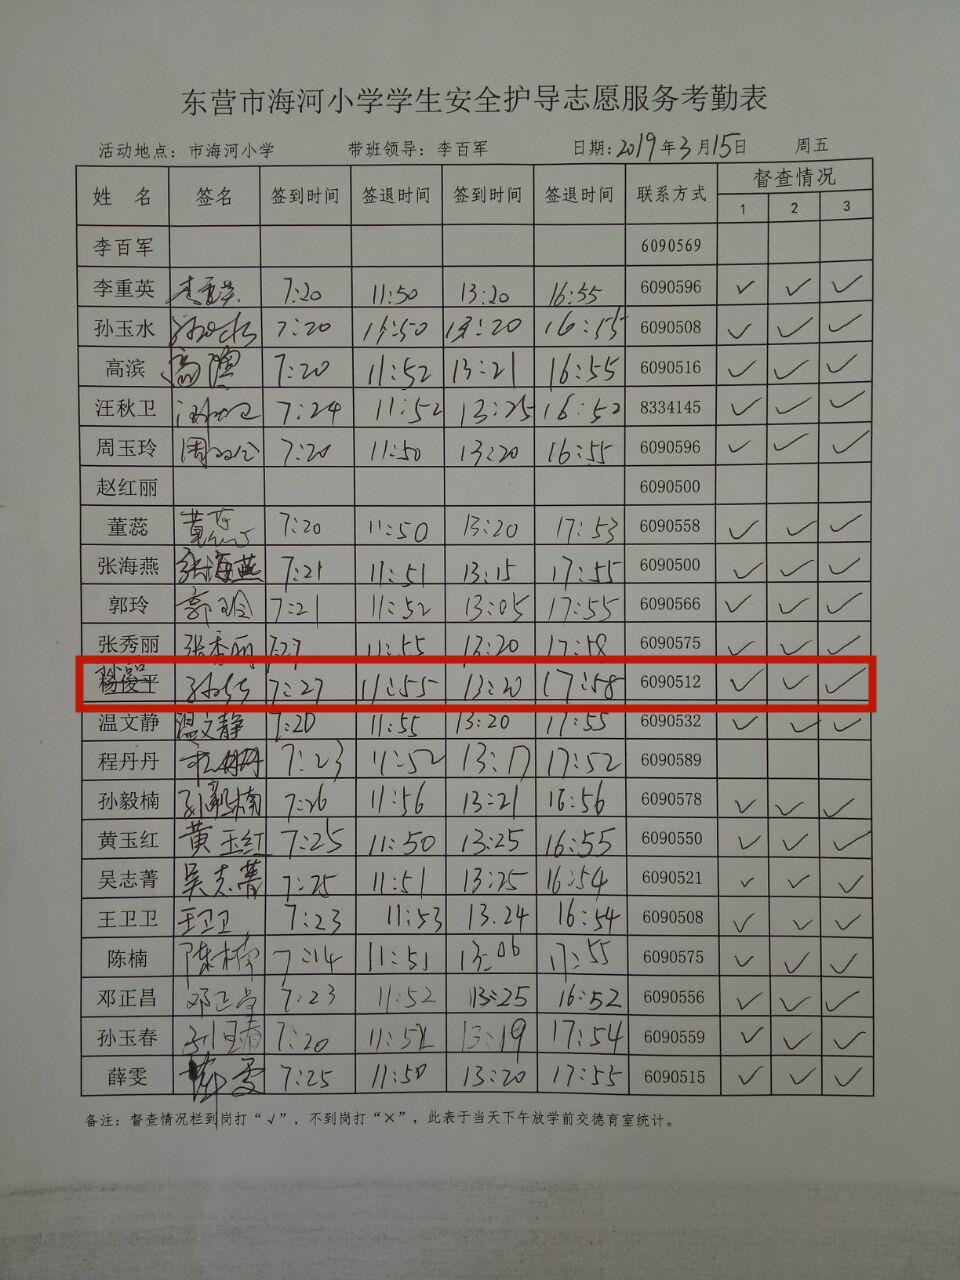 东营市海河小学学生安全护导志愿服务考勤表
活动地点：市海河小学 带班领导：李百军 日期：2019年3月15日 周五
姓 名 签名 签到时间 签退时间 签到时间 签退时间 联系方式 督查情况
1 2 3
李百军 6090569
李重英 李重英 7:20 11:50 13:20 16:55 6090596 ✓ ✓ ✓
孙玉水 孙玉水 7:20 11:50 13:20 16:55 6090508 ✓ ✓ ✓
高滨 高滨 7:20 11:52 13:21 16:55 6090516 ✓ ✓ ✓
汪秋卫 汪秋卫 7:24 11:52 13:25 16:52 8334145 ✓ ✓ ✓
周玉玲 周玉玲 7:20 11:50 13:20 16:55 6090596 ✓ ✓ ✓
赵红丽 6090500
董蕊 董蕊 7:20 11:50 13:20 17:53 6090558 ✓ ✓ ✓
张海燕 张海燕 7:21 11:51 13:15 17:55 6090500 ✓ ✓ ✓
郭玲 郭玲 7:21 11:52 13:05 17:55 6090566 ✓ ✓ ✓
张秀丽 张秀丽 7:27 11:55 13:20 17:58 6090575 ✓ ✓ ✓
杨俊平 7:27 11:55 13:20 17:58 6090512 ✓ ✓ ✓
温文静 温文静 7:20 11:55 13:20 17:55 6090532 ✓ ✓ ✓
程丹丹 程丹丹 7:23 11:52 13:17 17:52 6090589
孙毅楠 孙毅楠 7:26 11:56 13:21 16:56 6090578 ✓ ✓ ✓
黄玉红 黄玉红 7:25 11:50 13:25 16:55 6090550 ✓ ✓ ✓
吴志菁 吴志菁 7:25 11:51 13:25 16:54 6090521 ✓ ✓ ✓
王卫卫 王卫卫 7:23 11:53 13.24 16:54 6090508 ✓ ✓ ✓
陈楠 陈楠 7:14 11:51 13:06 17:55 6090575 ✓ ✓ ✓
邓正昌 邓正昌 7:23 11:52 13:25 16:52 6090556 ✓ ✓ ✓
孙玉春 孙玉春 7:20 11:52 13:19 17:54 6090559 ✓ ✓ ✓
薛雯 薛雯 7:25 11:50 13:20 17:55 6090515 ✓ ✓ ✓
备注：督查情况栏到岗打“√”，不到岗打“×”，此表于当天下午放学前交德育室统计。